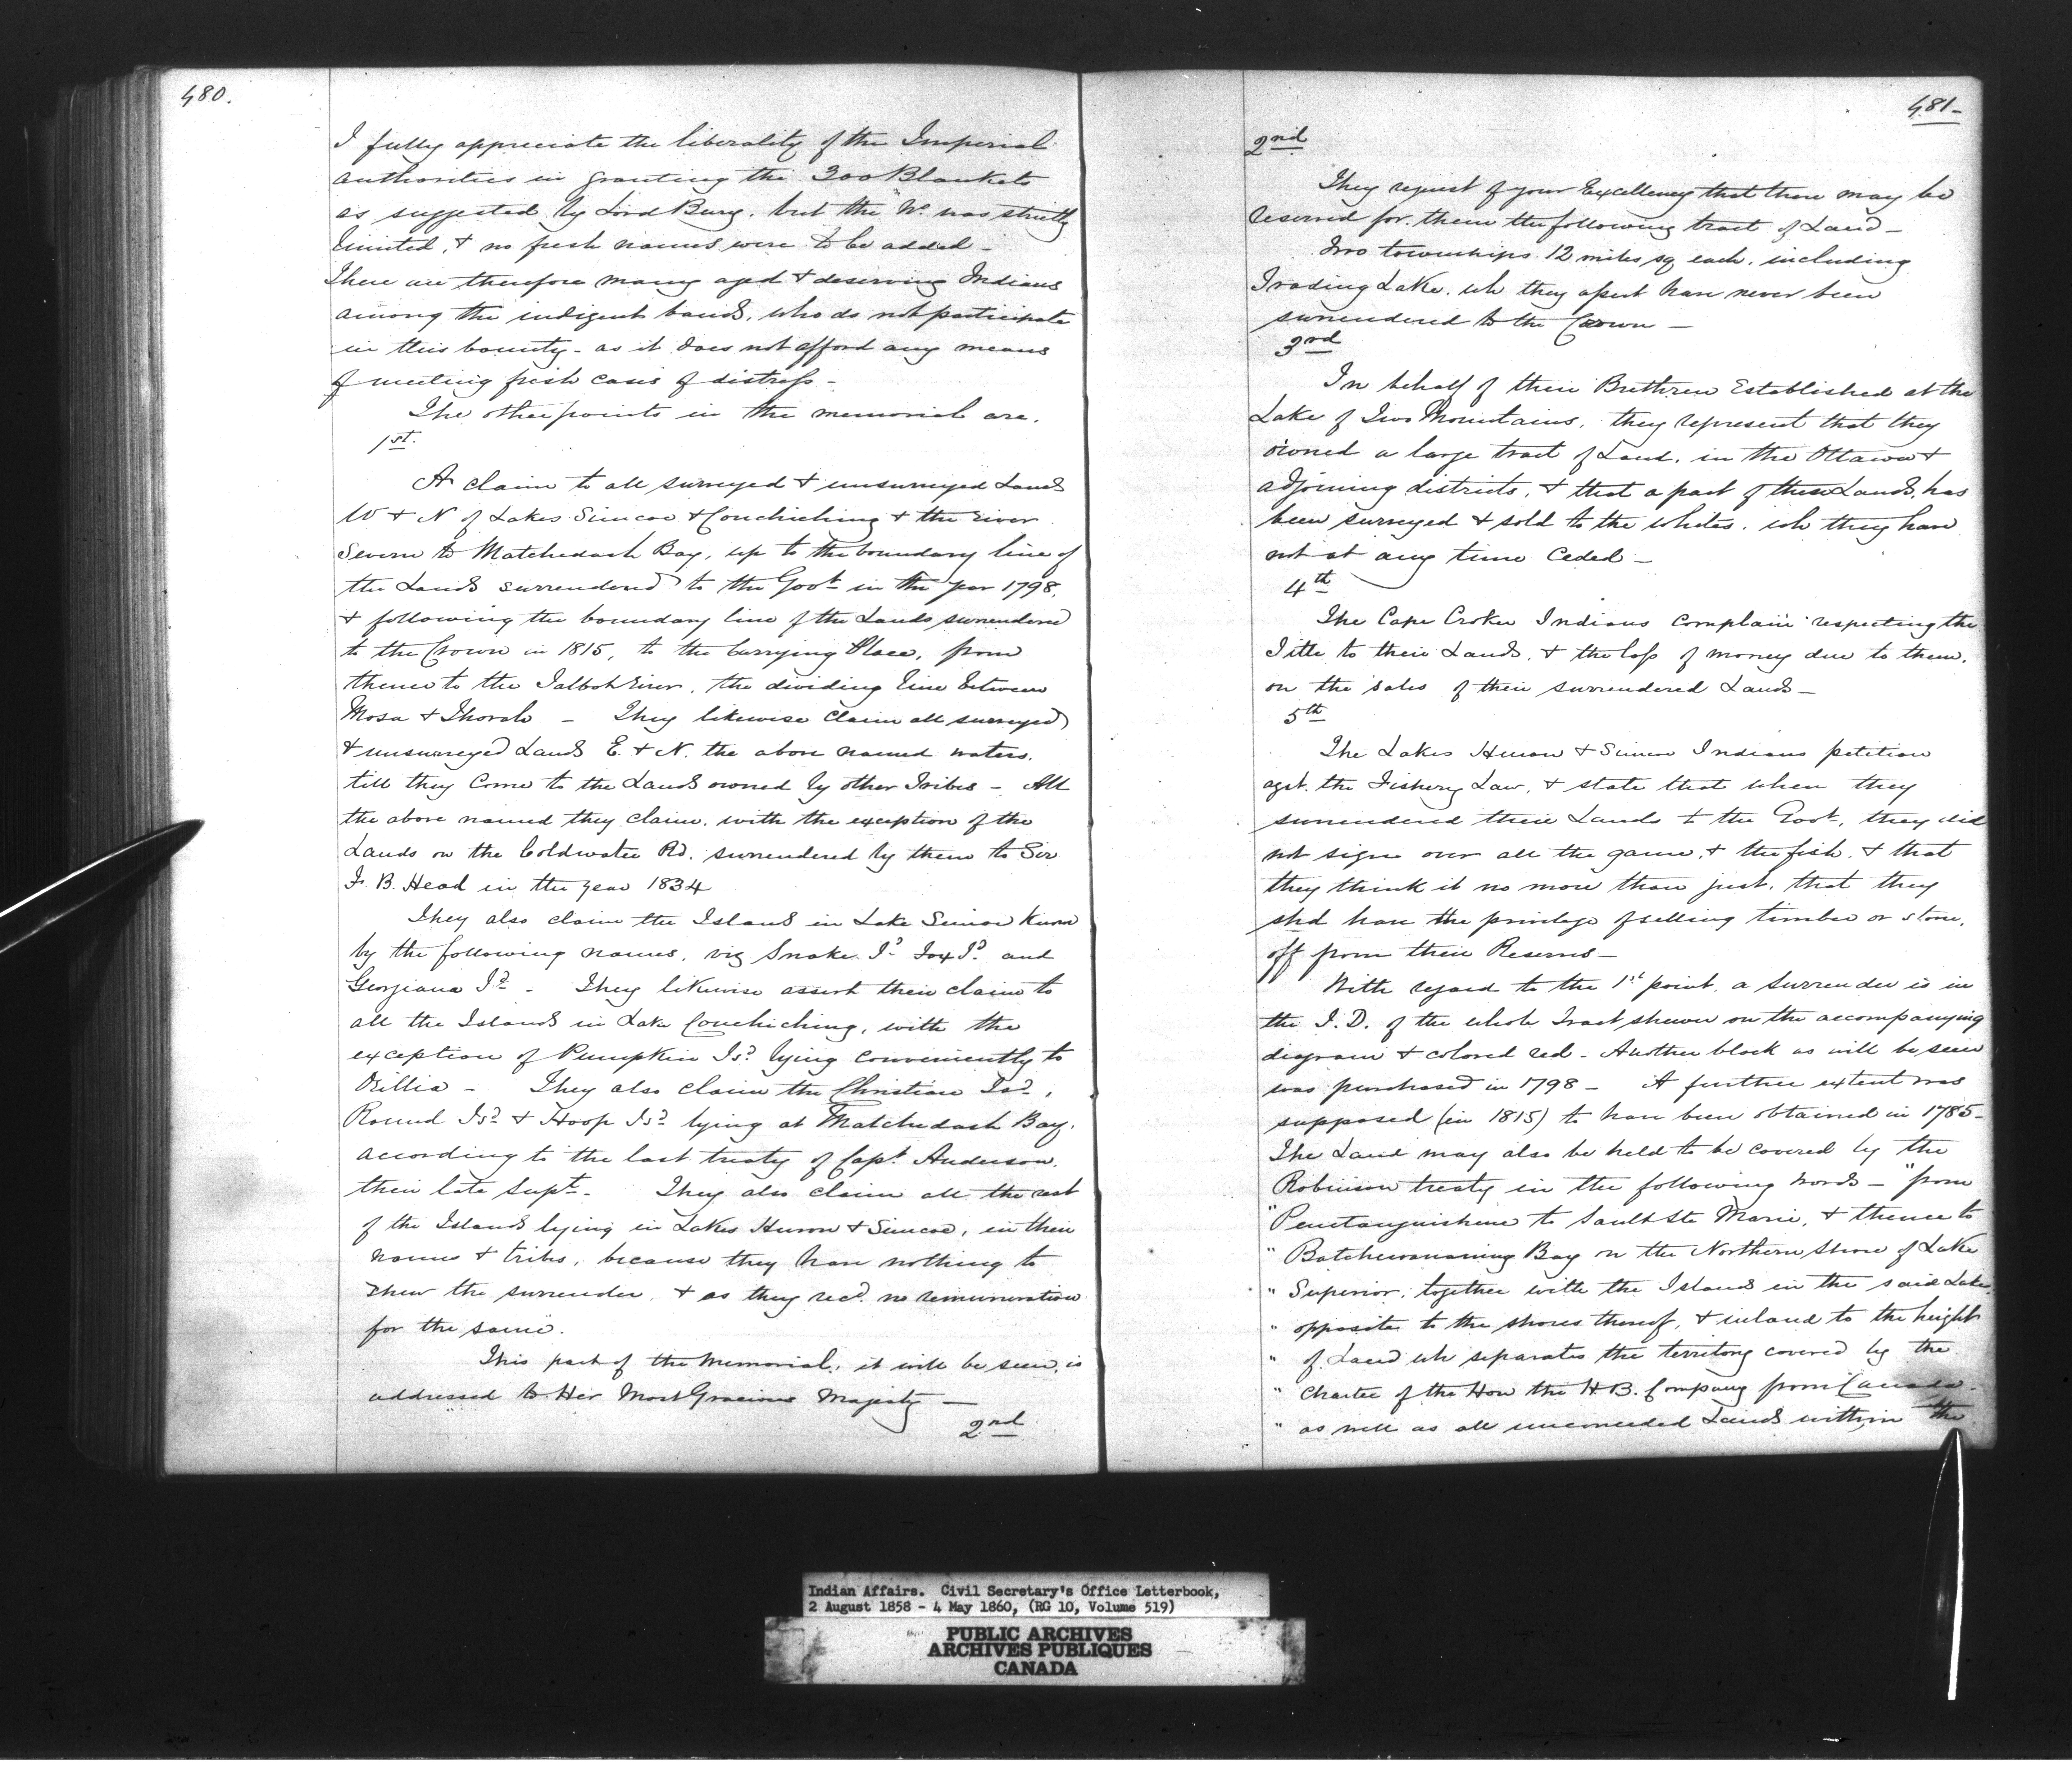 480.
I fully appreciate the liberality of the Imperial
authorities in granting the 300 Blankets
as suggested by Lord Bury. but the No. was strictly
limited, & no fresh names were to be added -
There are therefore many aged & deserving Indians
among the indigent bands, who do not participate
in this bounty - as it does not afford any means
of meeting fresh cases of distress -
The other points in the memorial are.
1st.
A claim to all surveyed & unsurveyed Lands
W & N of Lakes Simcoe & Couchiching & the river
Severn to Matchedash Bay, up to the boundary line of
the Lands surrendered to the Govt in the year 1798,
& following the boundary line of the Lands surrendered
to the Crown in 1815, to the Carrying Place, from
thence to the Talbot River, the dividing line between
Mara & Thorah - They likewise claim all surveyed
& unsurveyed Lands E. & N. the above named waters.
till they come to the Lands owned by other Tribes - All
the above named they claim, with the exception of the
Lands on the Coldwater Rd. surrendered by them to Sir
F. B. Head in the year 1834
They also claim the Islands in Lake Simcoe known
by the following names, viz Snake Id. Fox Id. and
Georgiana Id. - They likewise assert their claim to
all the Islands in Lake Couchiching, with the
exception of Pumpkin Isd. lying conveniently to
Orillia - They also claim the Christian Isd.,
Round Isd. & Hoop Isd. lying at Matchedash Bay.
according to the last treaty of Capt. Anderson,
their late Supt. They also claim all the rest
of the Islands lying in Lakes Huron & Simcoe, in their
name & tribes, because they have nothing to
shew the surrender, & as they recd. no remuneration
for the same.
This part of the memorial, it will be seen, is
addressed to Her Most Gracious Majesty -
2nd
481-
2nd
They request of your Excellency that there may be
reserved for them the following tract of Land -
Two townships 12 miles sq each, including
Trading Lake, wh they assert have never been
surrendered to the Crown -
3rd
In behalf of their Brethren Established at the
Lake of Two Mountains, they represent that they
owned a large tract of Land, in the Ottawa &
adjoining districts, & that a part of these Lands has
been surveyed & sold to the whites, wh they have
not at any time Ceded -
4th
The Cape Croker Indians complain respecting the
Title to their Lands, & the loss of money due to them,
on the sales of their surrendered Lands -
5th
The Lakes Huron & Simcoe Indians petition
agst. the Fishery Law, & state that when they
surrendered their Lands to the Govt, they did
not sign over all the game, & the fish, & that
they think it no more than just, that they
shd have the privilege of selling timber or stone,
off from their Reserves -
With regard to the 1st point, a surrender is in
the I. D. of the whole Tract shewn on the accompanying
diagram & colored red - Another block as will be seen
was purchased in 1798 - A further extent was
supposed (in 1815) to have been obtained in 1785 -
The Land may also be held to be covered by the
Robinson treaty in the following words - "from
" Penetanguishene to Sault Ste Marie, & thence to
" Batchewanaung Bay on the Northern Shore of Lake
" Superior, together with the Islands in the said Lake
" opposite to the shores thereof, & inland to the height
" of Land wh separates the territory covered by the
" charter of the Hon the H.B. Company from Canada -
" as well as all unconceded Lands within the
Indian Affairs. Civil Secretary's Office Letterbook,
2 August 1858 - 4 May 1860, (RG 10, Volume 519)
PUBLIC ARCHIVES
ARCHIVES PUBLIQUES
CANADA